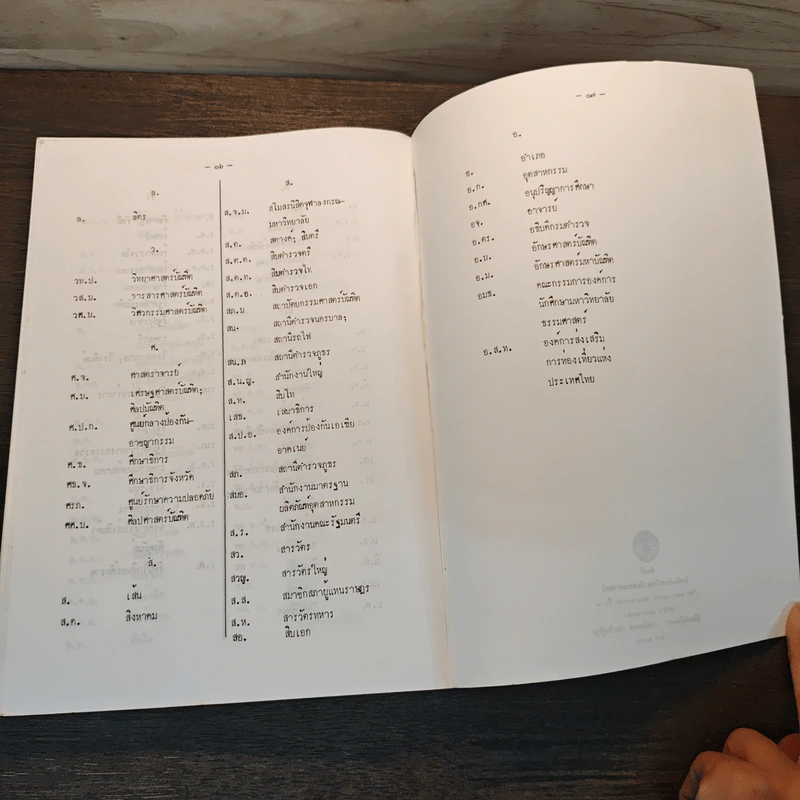 — ๑๖ —
ล.
ล. ลิตร
ว.
วท.บ. วิทยาศาสตร์บัณฑิต
วส.บ. วารสารศาสตร์บัณฑิต
วศ.บ. วิศวกรรมศาสตร์บัณฑิต
ศ.
ศ.จ. ศาสตราจารย์
ศ.บ. เศรษฐศาสตร์บัณฑิต;
ศิลปบัณฑิต
ศ.ป.ก. ศูนย์กลางป้องกัน–
อาชญากรรม
ศ.ธ. ศึกษาธิการ
ศธ.จ. ศึกษาธิการจังหวัด
ศรภ. ศูนย์รักษาความปลอดภัย
ศศ.บ. ศิลปศาสตร์บัณฑิต
ส.
ส. เส้น
ส.ค. สิงหาคม
ส.
ส.จ.ม. สโมสรนิสิตจุฬาลงกรณ–
มหาวิทยาลัย
ส.ต. สตางค์; สิบตรี
ส.ต.ต. สิบตำรวจตรี
ส.ต.ท. สิบตำรวจโท
ส.ต.อ. สิบตำรวจเอก
สถ.บ สถาปัตยกรรมศาสตร์บัณฑิต
สน. สถานีตำรวจนครบาล;
สถานีรถไฟ
สน.ภ สถานีตำรวจภูธร
ส.น.ญ. สำนักงานใหญ่
ส.ท. สิบโท
เสธ. เสนาธิการ
ส.ป.อ. องค์การป้องกันเอเซีย
อาคเนย์
สภ. สถานีตำรวจภูธร
สมอ. สำนักงานมาตรฐาน
ผลิตภัณฑ์อุตสาหกรรม
ส.ร. สำนักงานคณะรัฐมนตรี
สว. สารวัตร
สวญ. สารวัตรใหญ่
ส.ส. สมาชิกสภาผู้แทนราษฎร
ส.ห. สารวัตรทหาร
สอ. สิบเอก
— ๑๗ —
อ.
อ. อำเภอ
อ.ก. อุตสาหกรรม
อ.กศ. อนุปริญญาการศึกษา
อจ. อาจารย์
อ.ตร. อธิบดีกรมตำรวจ
อ.บ. อักษรศาสตร์บัณฑิต
อ.ม. อักษรศาสตร์มหาบัณฑิต
อมธ. คณะกรรมการองค์การ
นักศึกษามหาวิทยาลัย
ธรรมศาสตร์
อ.ส.ท. องค์การส่งเสริม
การท่องเที่ยวแห่ง
ประเทศไทย